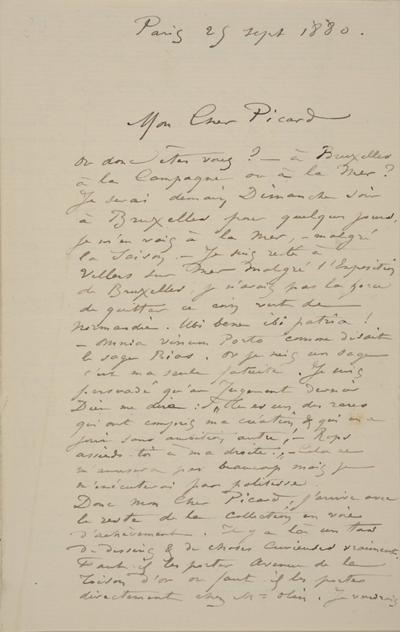 Paris 25 sept 1880.
Mon Cher Picard
où donc êtes vous ? – à Bruxelles
à la Campagne ou à la Mer ?
Je serai demain, Dimanche soir
à Bruxelles pour quelques jours,
je m'en vais à la mer, – malgré
la Saison. – Je suis resté à
Villers sur Mer malgré l'Exposition
de Bruxelles, je n'avais pas la force
de quitter ce coin vert de
Normandie. Ubi bene ibi patria !
– Omnia vinum Porto comme disait
le sage Rias. Or je suis un sage
c'est ma seule fatuité. Je suis
persuadé qu'au Jugement dernier
Dieu me dira : "Tu es un des rares
qui ont compris ma création, & qui en a
joui sans ambition autre, – Rops
assieds-toi à ma droite", – Cela ne
m'amusera pas beaucoup mais je
m'exécuterai par politesse.
Donc mon Cher Picard, j'arrive avec
le reste de la collection en voie
d'achèvement. Il y a là un tas
de dessins & de choses curieuses vraiment.
Faut-il les porter Avenue de la
Toison d'or ou faut-il les porter
directement chez Mr Olin. Je voudrais